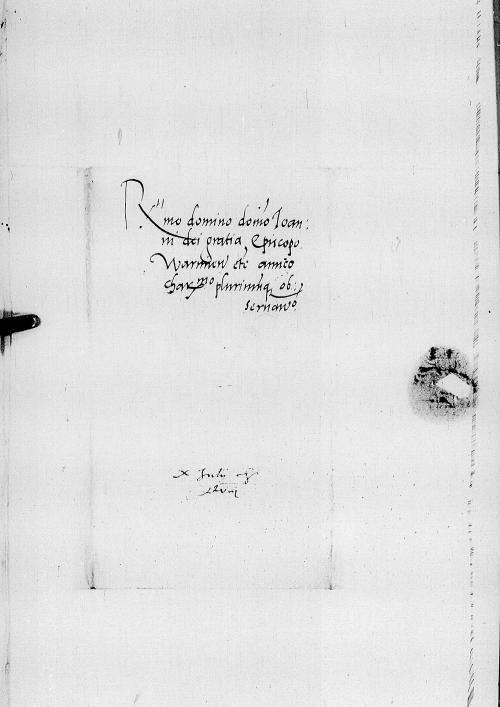 Rmo domino domo Ioan:
ni dei gratia Episcopo
Warmien etc amico
charmo plurimumq ob:
seruando
X Iulii